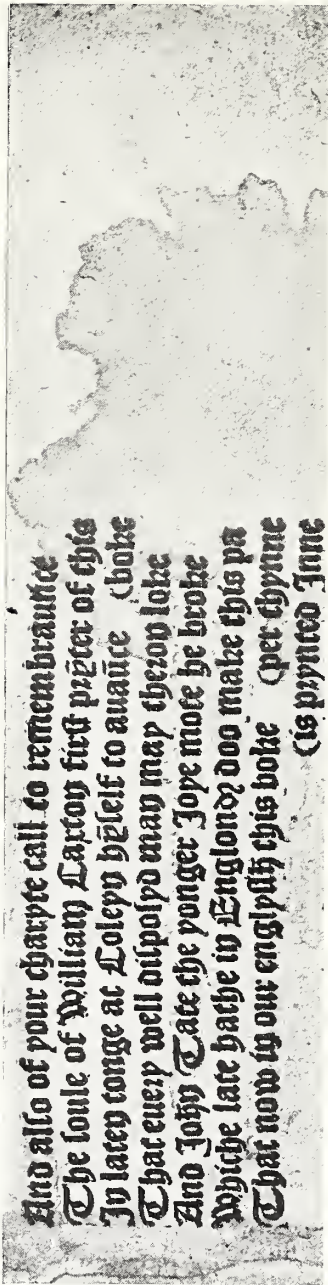 And also of your charyte call to remembraūce
The soule of William Caxton first prȳter of this
In laten tonge at Coleyn hȳself to auaūce (boke
That euery well disposyd man may theron loke
And John Tate the yonger Joye mote he broke
Whiche late hathe in Englond doo make this pa
That now in our englyssh this boke (per thynne
(is prynted Inne